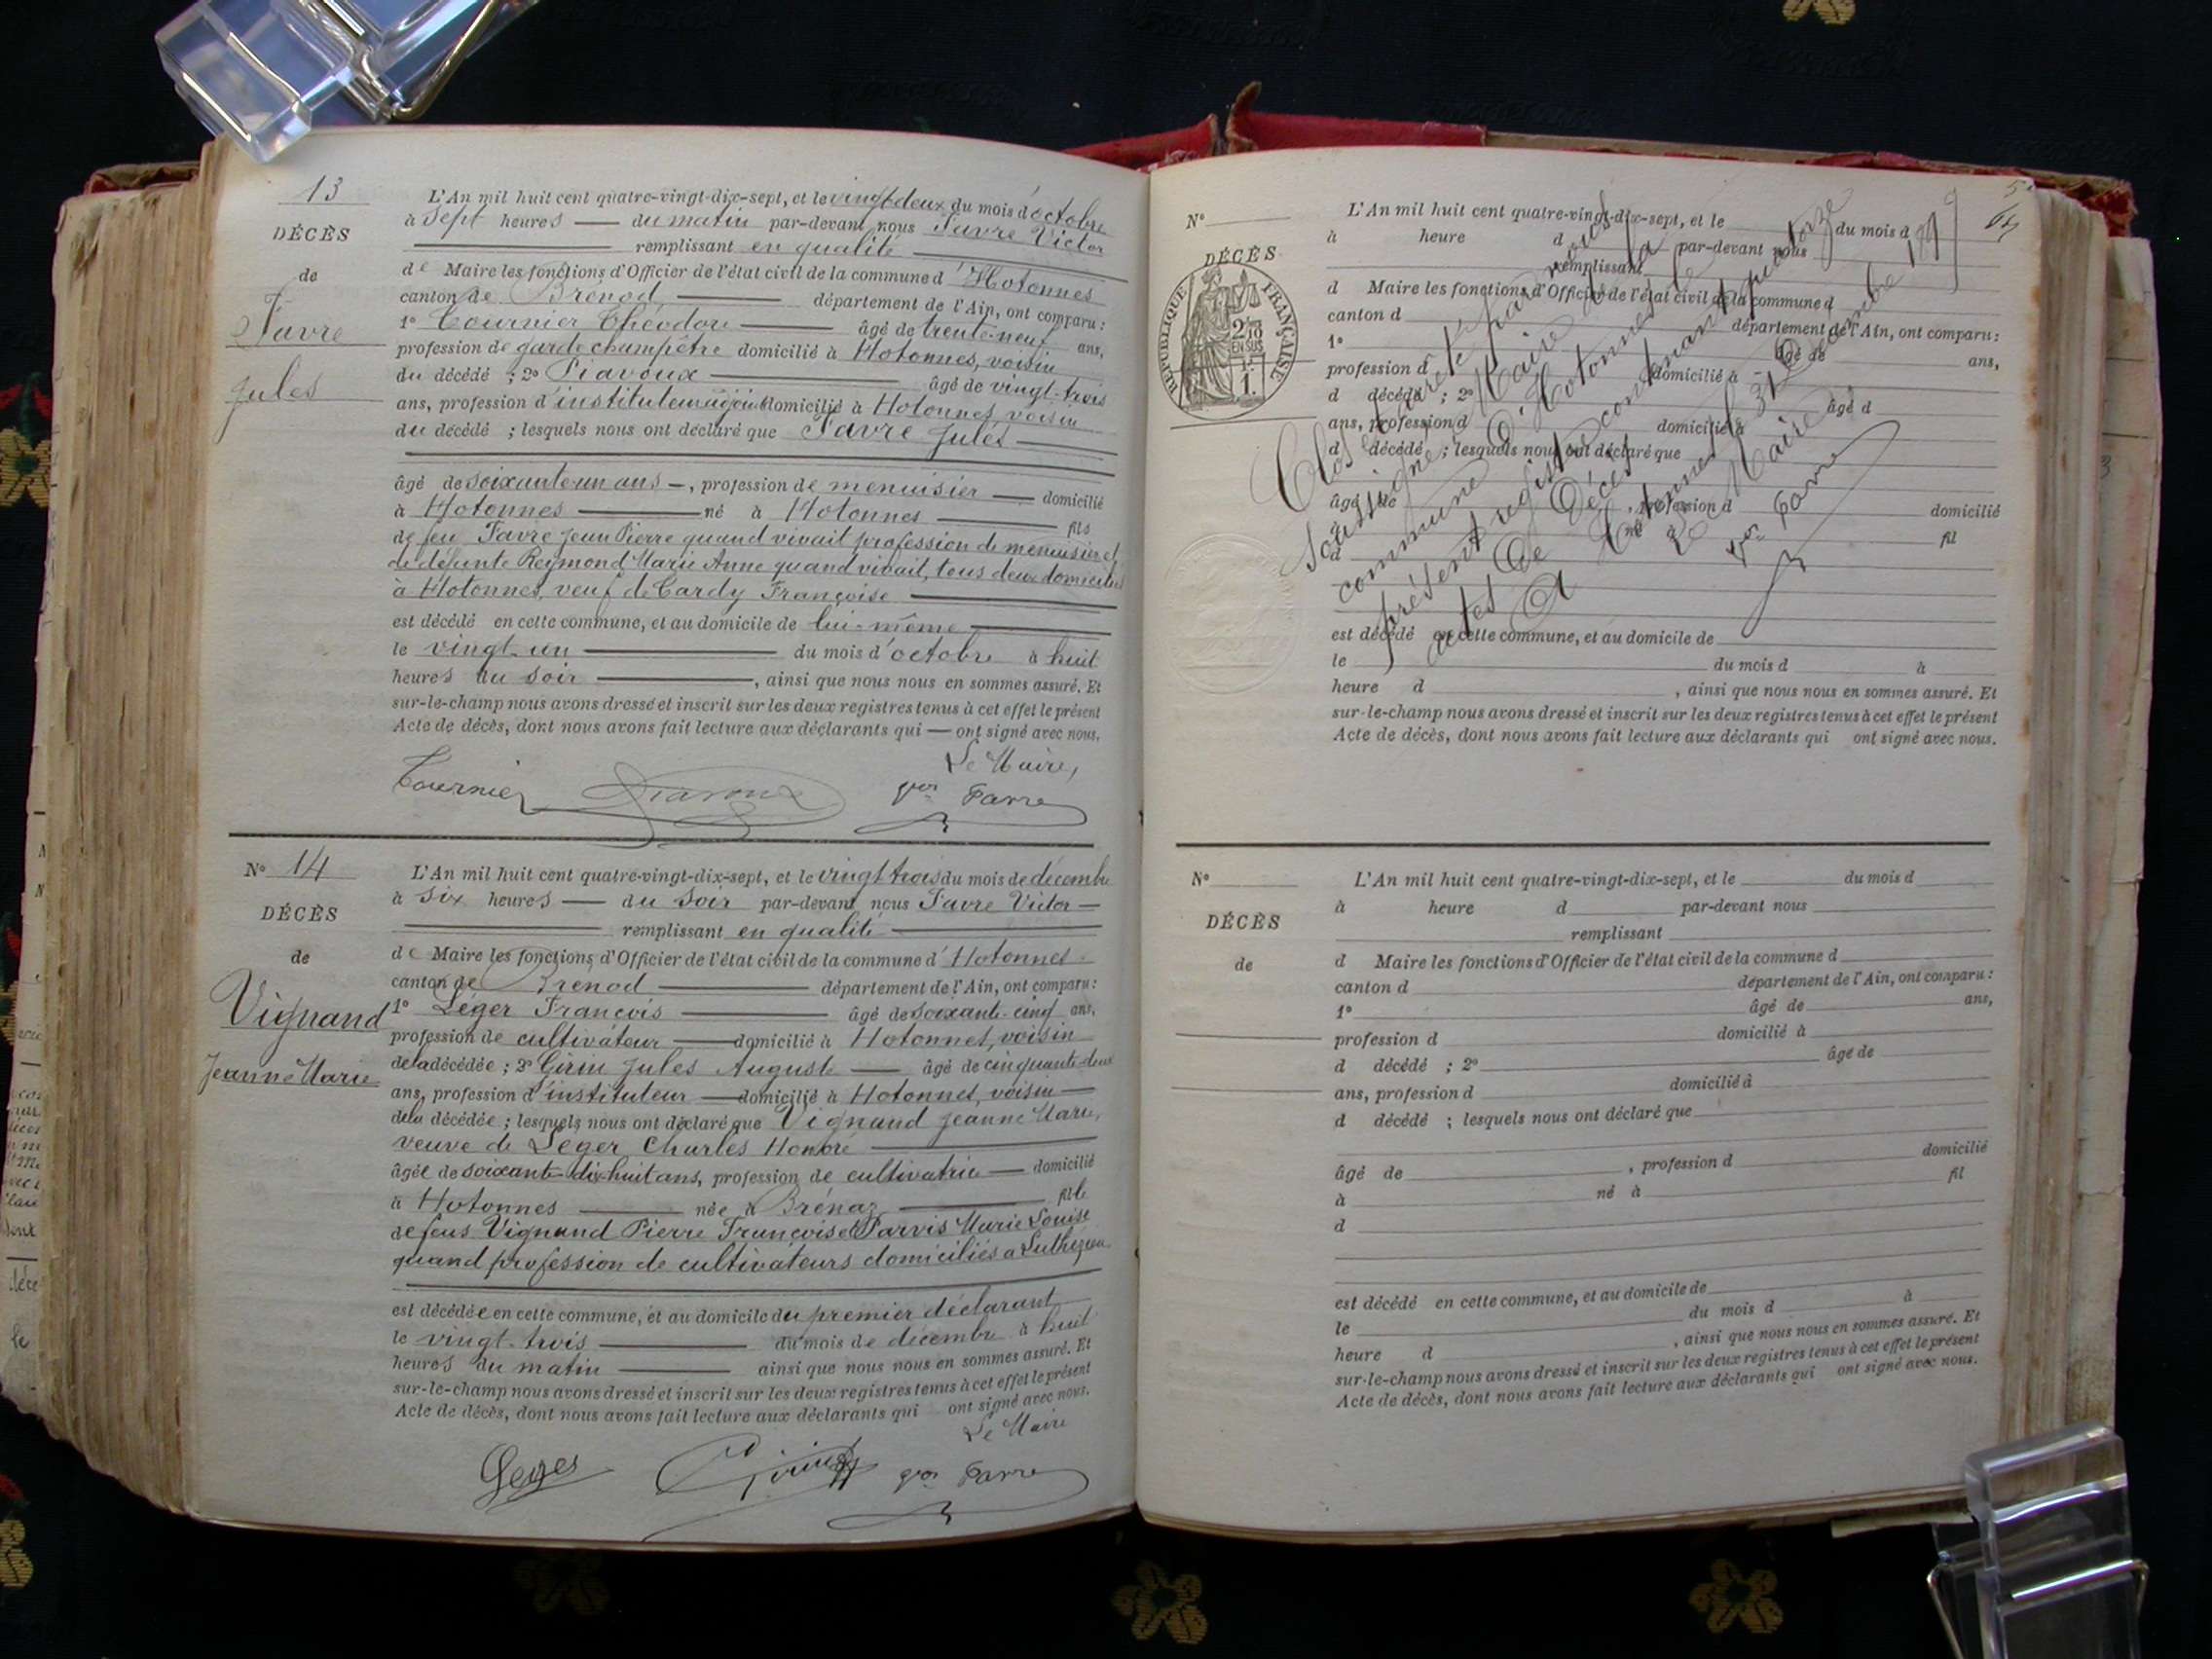 13
DÉCÈS
de
Favre
Jules
L'An mil huit cent quatre-vingt-dix-sept, et le vingt deux du mois d'octobre
à Sept heures du matin par-devant nous Favre Victor
remplissant en qualité
de Maire les fonctions d'Officier de l'état civil de la commune d'Hotonnes
canton de Brénod département de l'Ain, ont comparu :
1º Tournier Théodore âgé de trente-neuf ans,
profession de garde champêtre domicilié à Hotonnes, voisin
du décédé ; 2º Pravoux âgé de vingt-trois
ans, profession d'instituteur adjoint domicilié à Hotonnes, voisin
du décédé ; lesquels nous ont déclaré que Favre Jules
âgé de soixante un ans, profession de menuisier domicilié
à Hotonnes né à Hotonnes fils
de feu Favre Jean Pierre quand vivait profession de menuisier et
de défunte Reymond Marie Anne quand vivait, tous deux domiciliés
à Hotonnes, veuf de Cardy Françoise
est décédé en cette commune, et au domicile de lui-même
le vingt-un du mois d'octobre à huit
heures du soir , ainsi que nous nous en sommes assuré. Et
sur-le-champ nous avons dressé et inscrit sur les deux registres tenus à cet effet le présent
Acte de décès, dont nous avons fait lecture aux déclarants qui ont signé avec nous.
Le Maire,
Tournier Pravoux Vor Favre
Nº 14
DÉCÈS
de
Vignand
Jeanne Marie
L'An mil huit cent quatre-vingt-dix-sept, et le vingt trois du mois de décembre
à six heures du soir par-devant nous Favre Victor
remplissant en qualité
de Maire les fonctions d'Officier de l'état civil de la commune d'Hotonnes
canton de Brénod département de l'Ain, ont comparu :
1º Léger François âgé de soixante-cinq ans,
profession de cultivateur domicilié à Hotonnes, voisin
de la décédée ; 2º Girin Jules Auguste âgé de cinquante-deux
ans, profession d'instituteur domicilié à Hotonnes, voisin
de la décédée ; lesquels nous ont déclaré que Vignand Jeanne Marie,
veuve de Léger Charles Honoré
âgée de soixante-dix-huit ans, profession de cultivatrice domicilié
à Hotonnes née à Brénaz fille
de feus Vignand Pierre François et Parvis Marie Louise
quand profession de cultivateurs domiciliés à Luthézieu
est décédée en cette commune, et au domicile du premier déclarant
le vingt-trois du mois de décembre à huit
heures du matin ainsi que nous nous en sommes assuré. Et
sur-le-champ nous avons dressé et inscrit sur les deux registres tenus à cet effet le présent
Acte de décès, dont nous avons fait lecture aux déclarants qui ont signé avec nous.
Le Maire
Leger Girin Vor Favre
Nº
DÉCÈS
RÉPUBLIQUE FRANÇAISE
2/10
EN SUS
1.
L'An mil huit cent quatre-vingt-dix-sept, et le du mois d
à heure d par-devant nous
remplissant
d Maire les fonctions d'Officier de l'état civil de la commune d
canton d département de l'Ain, ont comparu :
1º âgé de ans,
profession d domicilié à
d décédé ; 2º âgé d
ans, profession d domicilié à
d décédé ; lesquels nous ont déclaré que
âgé de , profession d domicilié
à né à fil
d
est décédé en cette commune, et au domicile de
le du mois d à
heure d , ainsi que nous nous en sommes assuré. Et
sur-le-champ nous avons dressé et inscrit sur les deux registres tenus à cet effet le présent
Acte de décès, dont nous avons fait lecture aux déclarants qui ont signé avec nous.
Clos et arrêté par nous
soussigné Maire de la
commune d'Hotonnes le
présent registre contenant quatorze
actes de Décès
A Hotonnes le 31 Décembre 1897
Le Maire
Vor Favre
Nº
DÉCÈS
de
L'An mil huit cent quatre-vingt-dix-sept, et le du mois d
à heure d par-devant nous
remplissant
d Maire les fonctions d'Officier de l'état civil de la commune d
canton d département de l'Ain, ont comparu :
1º âgé de ans,
profession d domicilié à
d décédé ; 2º âgé de
ans, profession d domicilié à
d décédé ; lesquels nous ont déclaré que
âgé de , profession d domicilié
à né à fil
d
est décédé en cette commune, et au domicile de
le du mois d à
heure d , ainsi que nous nous en sommes assuré. Et
sur-le-champ nous avons dressé et inscrit sur les deux registres tenus à cet effet le présent
Acte de décès, dont nous avons fait lecture aux déclarants qui ont signé avec nous.